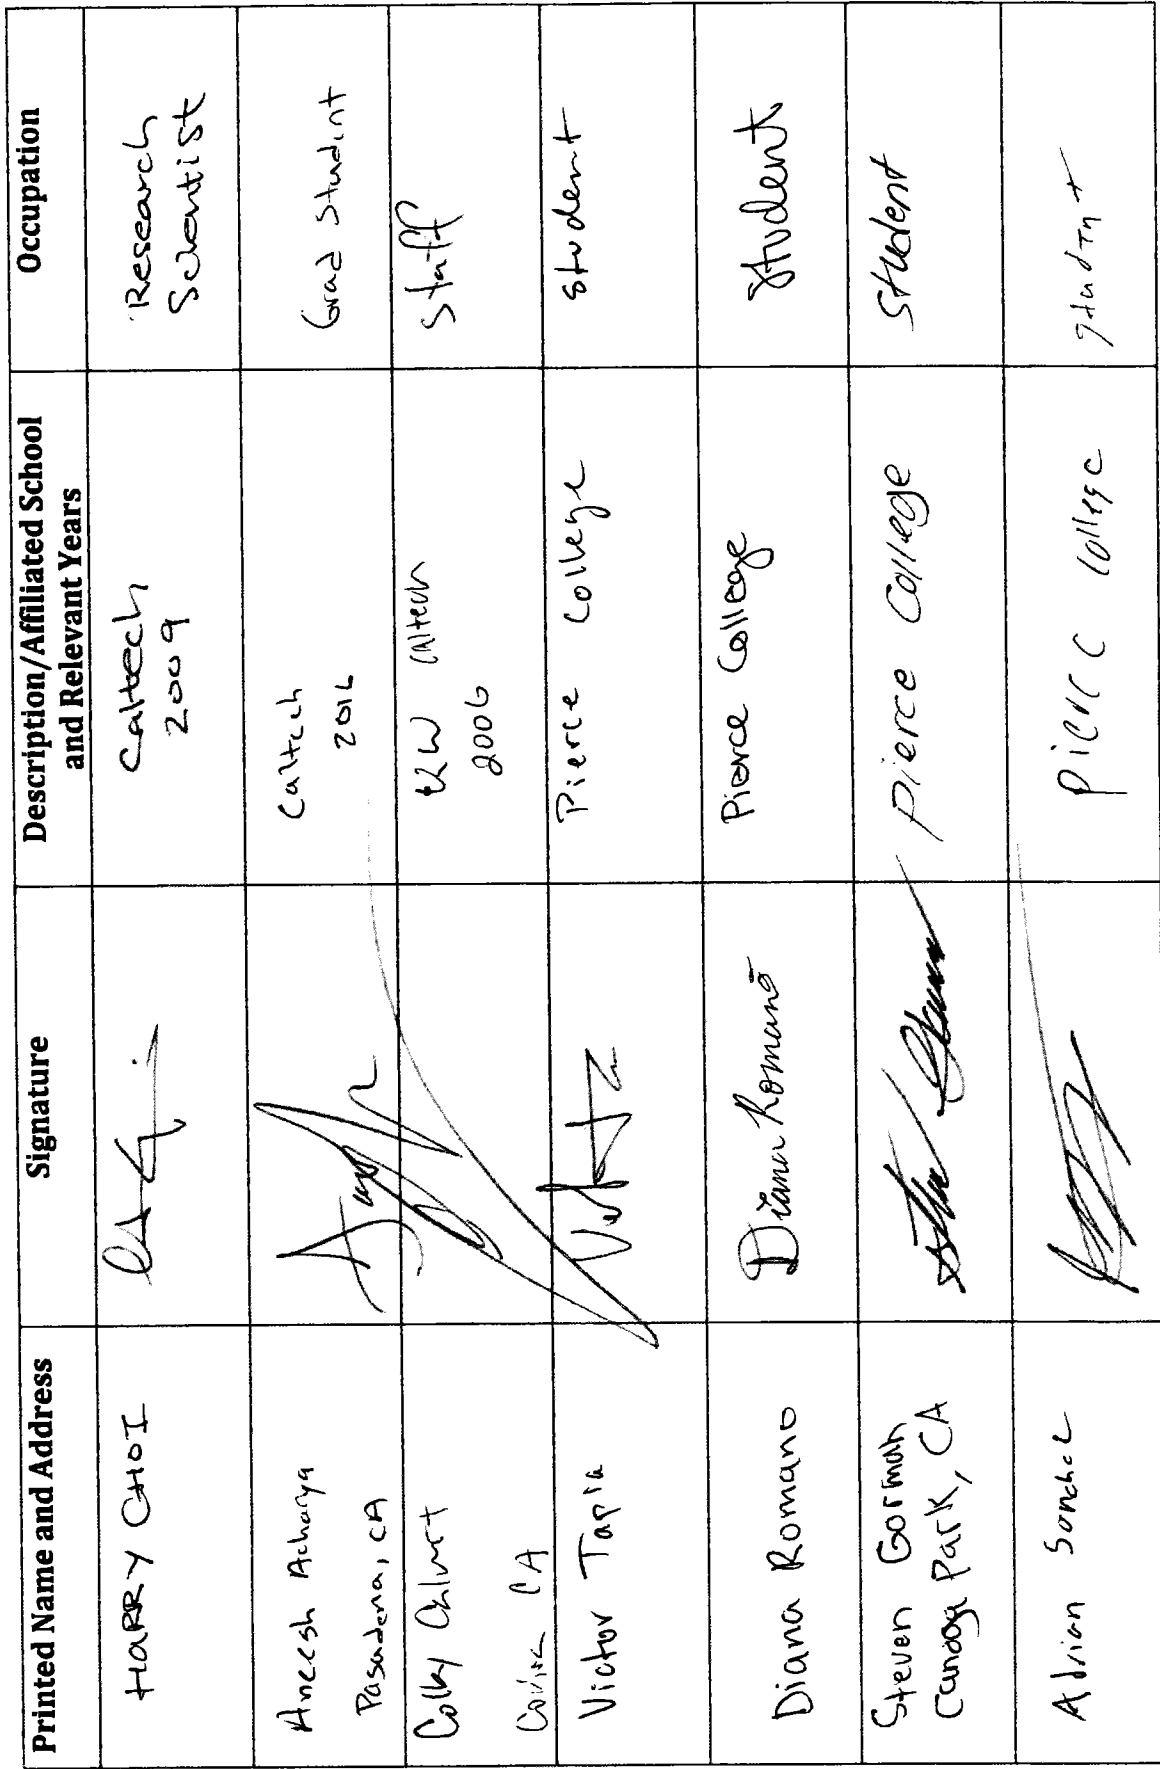 Printed Name and Address
Signature
Description/Affiliated School
and Relevant Years
Occupation
HARRY CHOI
Caltech
2009
Research
Scientist
Aneesh Acharya
Pasadena, CA
Caltech
2016
Grad Student
CA
Caltech
2006
Staff
Victor Tapia
Pierce College
student
Diana Romano
Diana Romano
Pierce College
Student
Steven Gorman
Canoga Park, CA
Pierce College
Student
Adrian
Pierce College
student